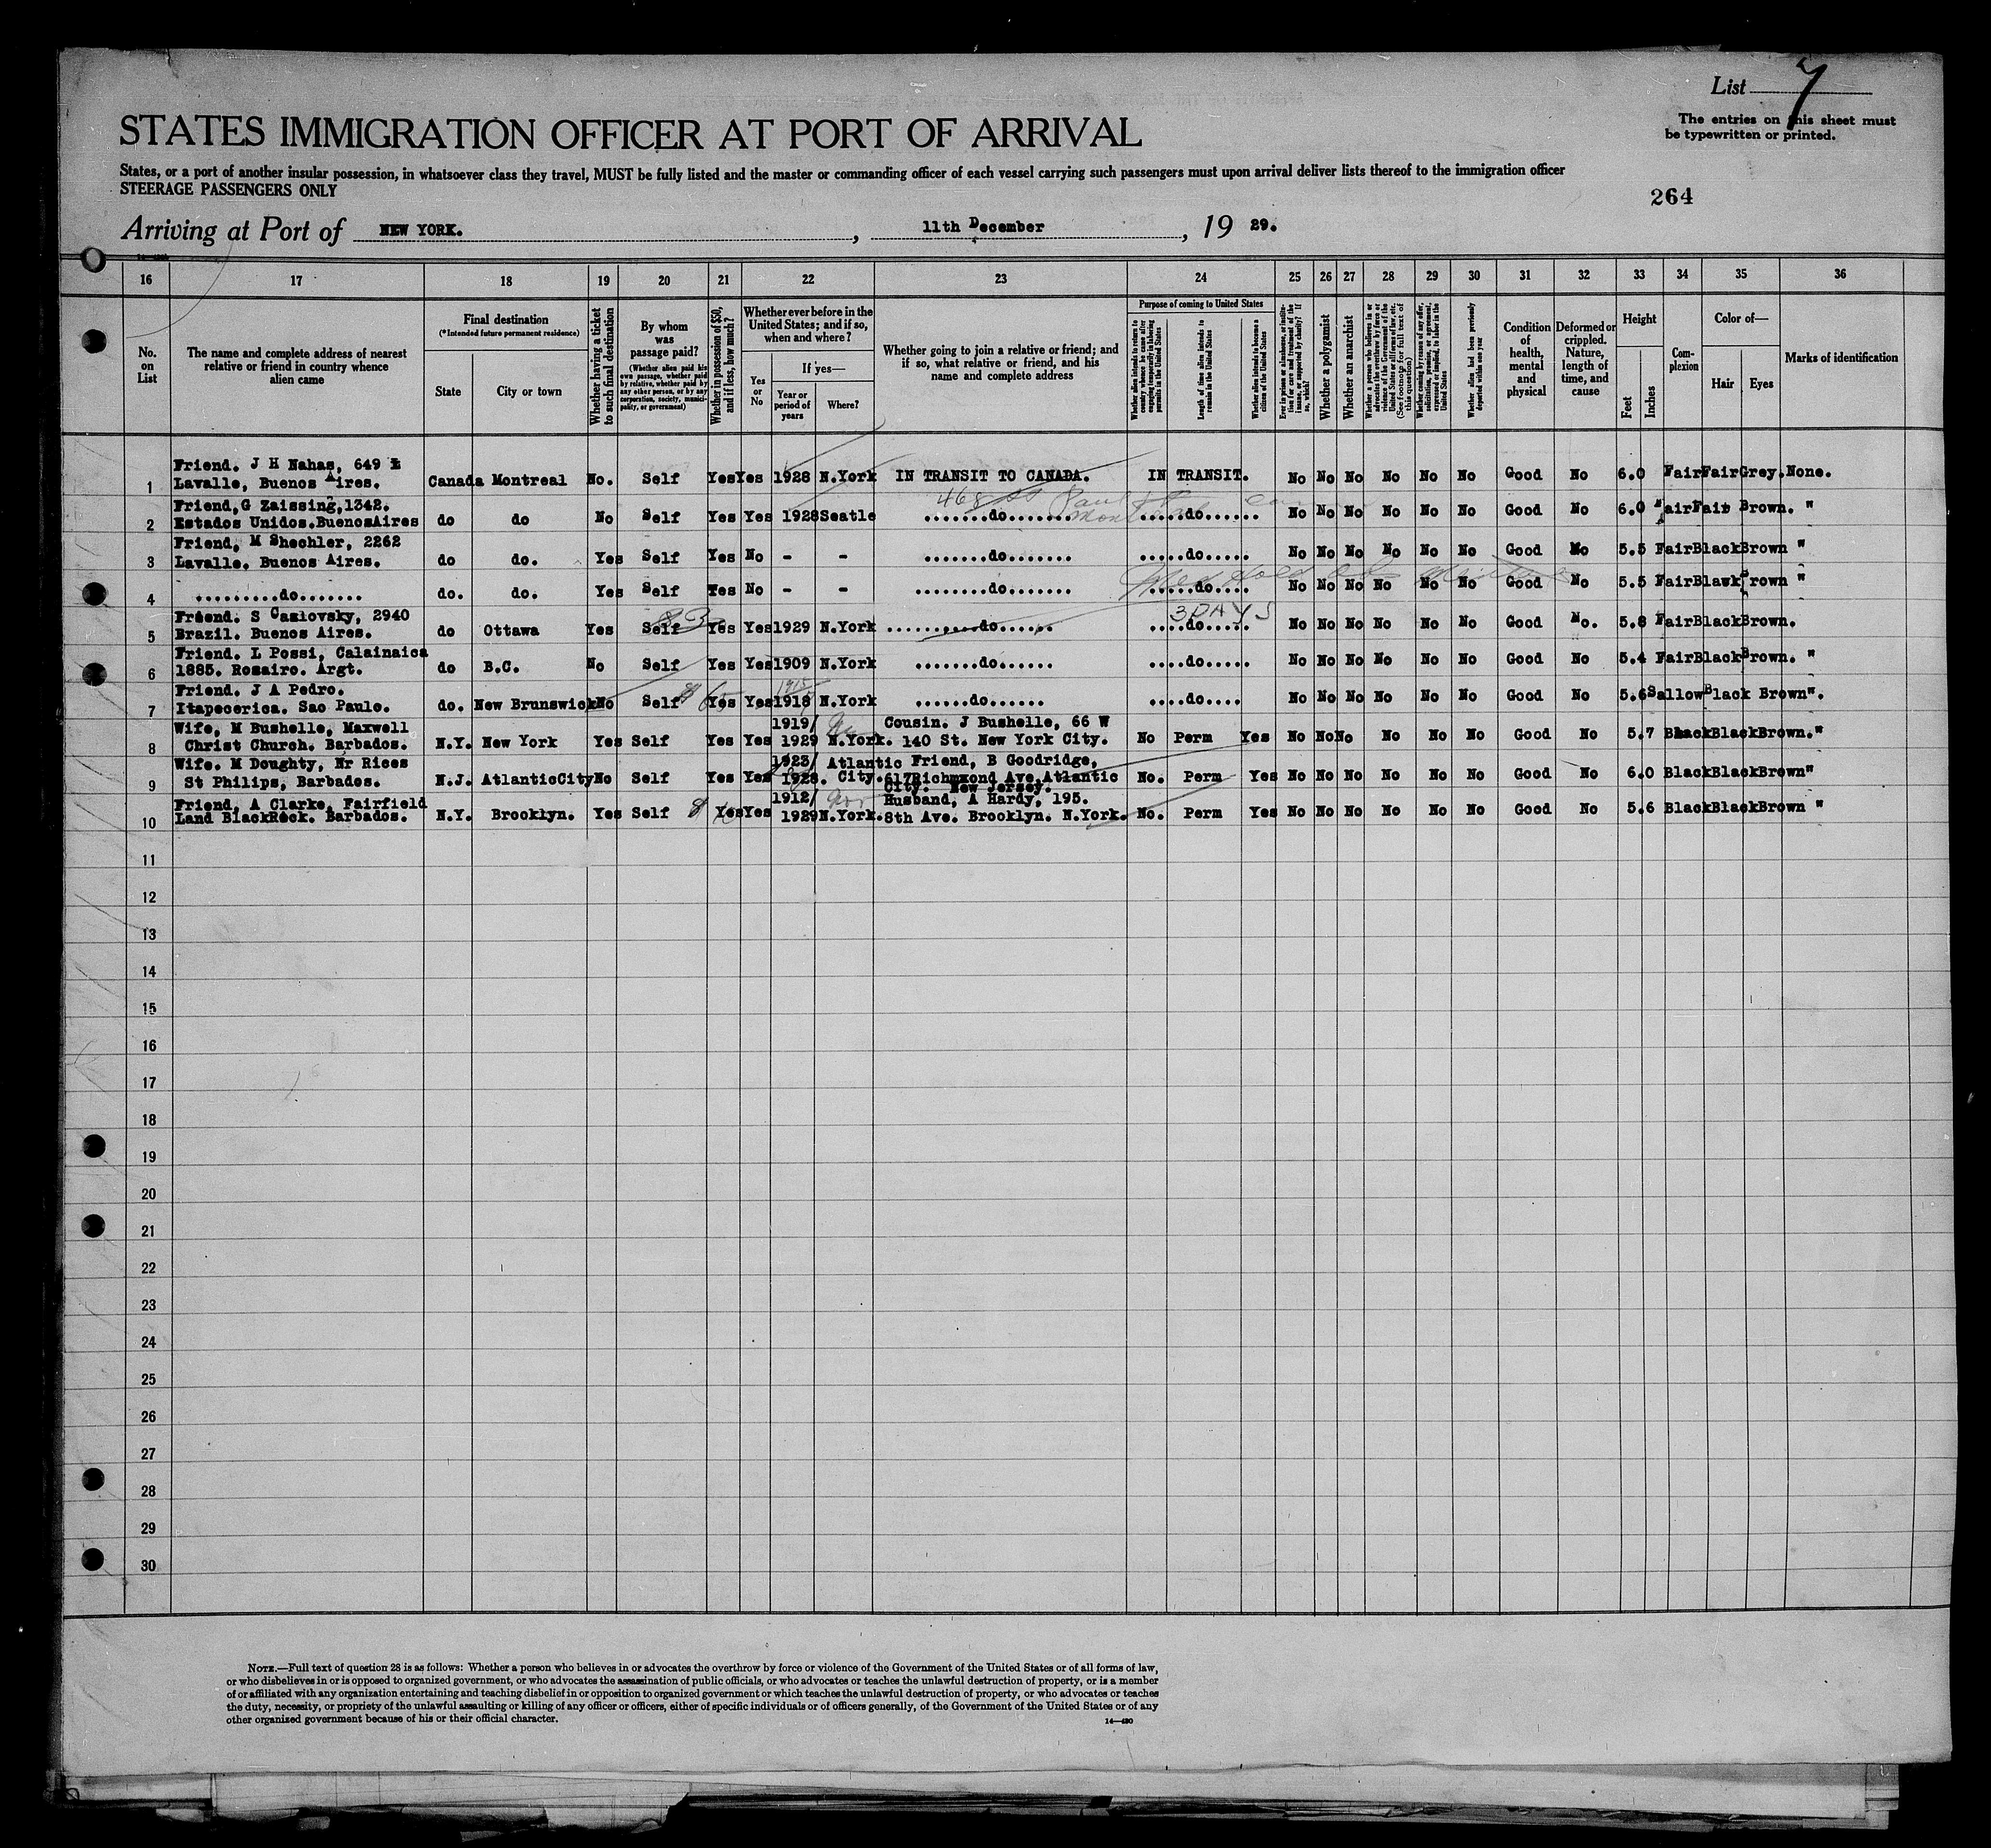 List 7
The entries on this sheet must
be typewritten or printed.
STATES IMMIGRATION OFFICER AT PORT OF ARRIVAL
States, or a port of another insular possession, in whatsoever class they travel, MUST be fully listed and the master or commanding officer of each vessel carrying such passengers must upon arrival deliver lists thereof to the immigration officer
STEERAGE PASSENGERS ONLY
264
Arriving at Port of NEW YORK. , 11th December , 19 29.
16 17 18 19 20 21 22 23 24 25 26 27 28 29 30 31 32 33 34 35 36
No. on List
The name and complete address of nearest relative or friend in country whence alien came
Final destination
(*Intended future permanent residence)
State
City or town
Whether having a ticket to such final destination
By whom was passage paid?
(Whether alien paid his own passage, whether paid by relative, whether paid by any other person, or by any corporation, society, municipality, or government)
Whether in possession of $50, and if less, how much?
Whether ever before in the United States; and if so, when and where?
Yes or No
If yes—
Year or period of years
Where?
Whether going to join a relative or friend; and if so, what relative or friend, and his name and complete address
Purpose of coming to United States
Whether alien intends to return to country whence he came after engaging temporarily in laboring pursuits in the United States
Length of time alien intends to remain in the United States
Whether alien intends to become a citizen of the United States
Ever in prison or almshouse, or institution for care and treatment of the insane, or supported by charity? If so, which?
Whether a polygamist
Whether an anarchist
Whether a person who believes in or advocates the overthrow by force or violence of the Government of the United States or all forms of law, etc. (See footnote for full text of this question)
Whether coming by reason of any offer, solicitation, promise, or agreement, expressed or implied, to labor in the United States
Whether alien had been previously deported within one year
Condition of health, mental and physical
Deformed or crippled. Nature, length of time, and cause
Height
Feet
Inches
Complexion
Color of—
Hair
Eyes
Marks of identification
Friend. J H Nahas, 649
1 Lavalle, Buenos Aires. Canada Montreal No. Self Yes Yes 1928 N.York IN TRANSIT TO CANADA. IN TRANSIT. No No No No No No Good No 6.0 Fair Fair Grey. None.
468 St Paul
Friend, G Zaissing, 1342.
2 Estados Unidos. BuenosAires do do No Self Yes Yes 1928 Seatle .......do....... .....do...... No No No No No No Good No 6.0 Fair Fair Brown. "
Friend, M Shechler, 2262
3 Lavalle. Buenos Aires. do do. Yes Self Yes No - - ........do....... .....do..... No No No No No No Good No 5.5 Fair Black Brown "
4 .........do....... do. do. Yes Self Yes No - - ........do....... .....do.... No No No No No No Good No 5.5 Fair Blawk Brown "
3 DAYS
Friend. S Cazlovsky, 2940
5 Brazil. Buenos Aires. do Ottawa Yes Self Yes Yes 1929 N.York ..........do...... ....do..... No No No No No No Good No. 5.8 Fair Black Brown.
Friend. L Possi, Calainaica
6 1885. Rosairo. Argt. do B.C. No Self Yes Yes 1909 N.York .......do...... ....do..... No No No No No No Good No 5.4 Fair Black Brown. "
Friend. J A Pedro. 1915
7 Itapecerica. Sao Paulo. do. New Brunswick No Self $65 Yes Yes 1918 N.York ......do...... ....do.... No No No No No No Good No 5.6 Sallow Black Brown".
Wife, M Bushelle, Maxwell 1919/ Cousin. J Bushelle, 66 W
8 Christ Church. Barbados. N.Y. New York Yes Self Yes Yes 1929 N.York. 140 St. New York City. No Perm Yes No No No No No No Good No 5.7 Black Black Brown."
Wife. M Doughty, Nr Rices 1923/ Atlantic Friend, B Goodridge,
9 St Philips, Barbados. N.J. AtlanticCity No Self Yes Yes 1928. City. 617 Richmond Ave. Atlantic No. Perm Yes No No No No No No Good No 6.0 Black Black Brown"
City. New Jersey.
Friend, A Clarke, Fairfield 1912/ Husband, A Hardy, 195.
10 Land BlackRock. Barbados. N.Y. Brooklyn. Yes Self Yes Yes 1929 N.York. 8th Ave. Brooklyn. N.York. No. Perm Yes No No No No No No Good No 5.6 Black Black Brown "
11
12
13
14
15
16
17
18
19
20
21
22
23
24
25
26
27
28
29
30
NOTE.—Full text of question 28 is as follows: Whether a person who believes in or advocates the overthrow by force or violence of the Government of the United States or of all forms of law,
or who disbelieves in or is opposed to organized government, or who advocates the assassination of public officials, or who advocates or teaches the unlawful destruction of property, or is a member
of or affiliated with any organization entertaining and teaching disbelief in or opposition to organized government or which teaches the unlawful destruction of property, or who advocates or teaches
the duty, necessity, or propriety of the unlawful assaulting or killing of any officer or officers, either of specific individuals or of officers generally, of the Government of the United States or of any
other organized government because of his or their official character.
14—430